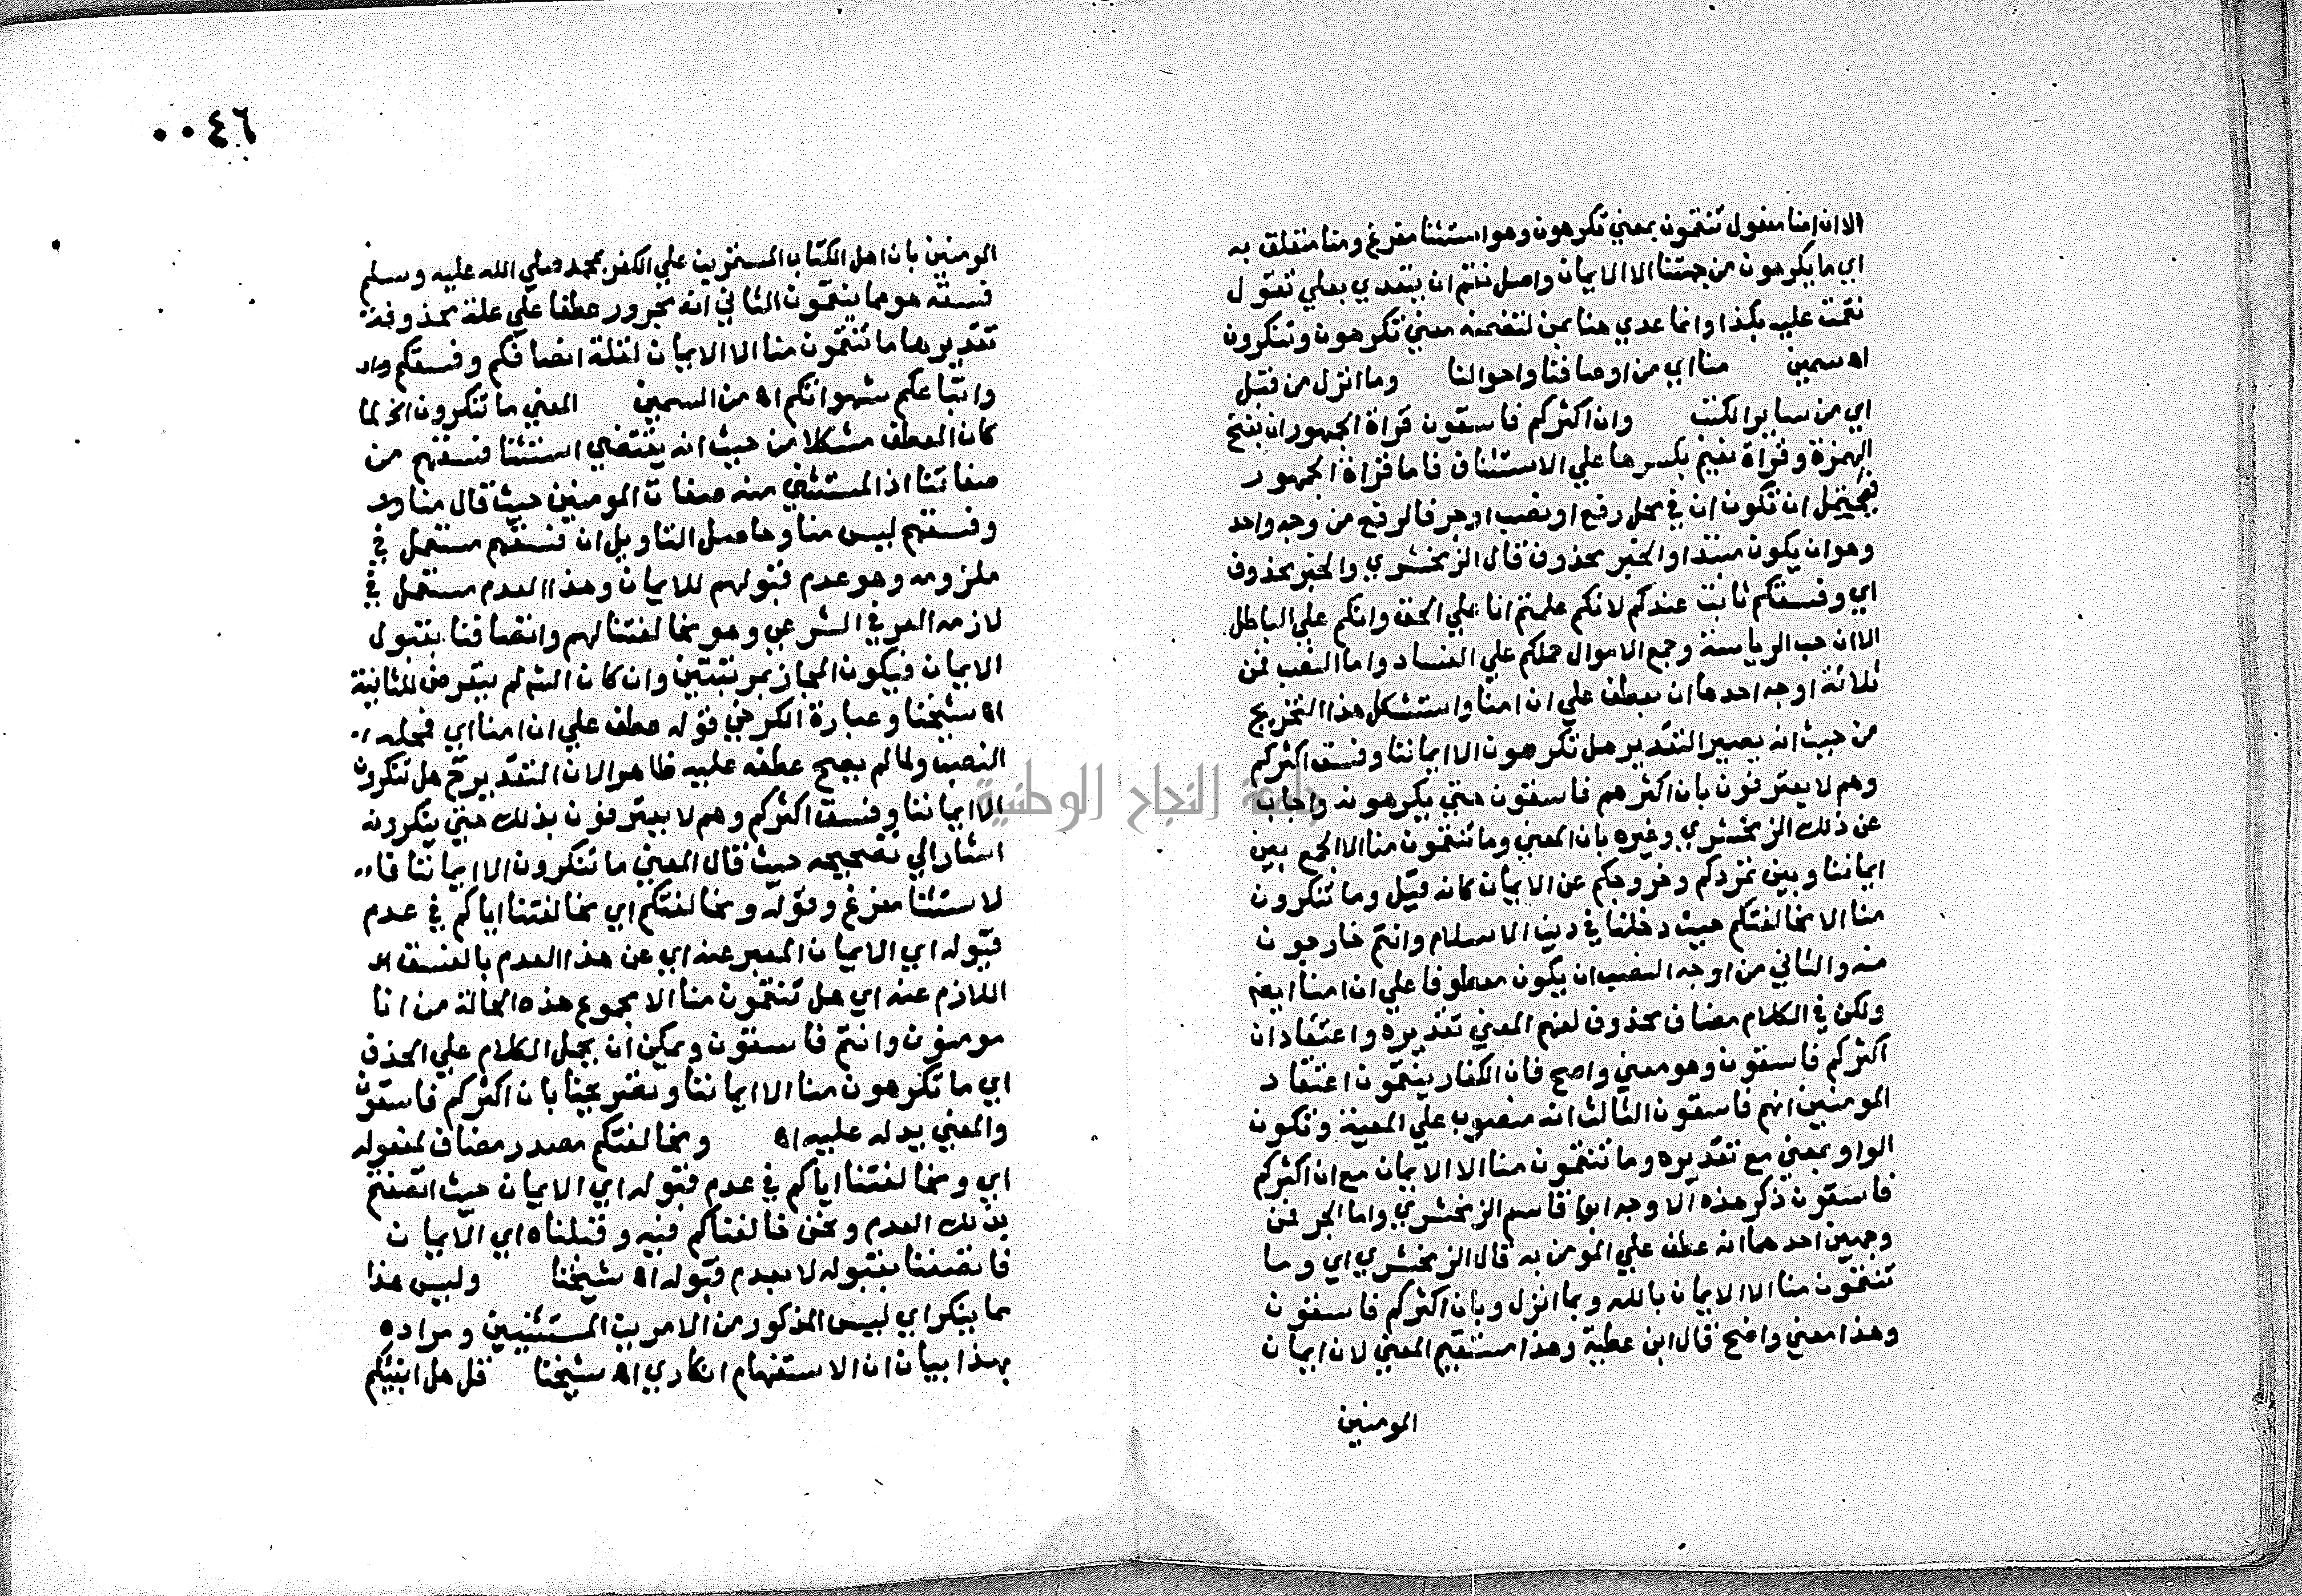 الا ان امنا مفعول تنقمون بمعني تكرهون وهو استثنا مفرغ ومنا متعلق به
اي ما يكرهون من جهتنا الا الايمان واصل نقم ان يتعدي بعلي تقول
نقمت عليه بكذا وانما عدي هنا بمن لتضمنه معني تكرهون وتنكرون
اه سمين منا اي من اوصافنا واحوالنا وما انزل من قبل
اي من ساير الكتب وان اكثركم فاسقون قراة الجمهور ان بفتح
الهمزة وقراة نعيم بكسرها علي الاستئناف فاما قراة الجمهور
فيحتمل ان تكون ان في محل رفع او نصب او جر فالرفع من وجه واحد
وهو ان يكون مبتدا والخبر محذوف قال الزمخشري والخبر محذوف
اي وفسقكم ثابت عندكم لانكم علمتم انا علي الحق وانكم علي الباطل
الا ان حب الرياسة وجمع الاموال حملكم علي العناد واما النصب فمن
ثلاثة اوجه احدها ان يعطف علي ان امنا واستشكل هذا التخريج
من حيث انه يصير التقدير هل تكرهون الا ايماننا وفسق اكثركم
وهم لا يعترفون بان اكثرهم فاسقون حتي يكرهونه واجاب
عن ذلك الزمخشري وغيره بان المعني وما تنقمون منا الا الجمع بين
ايماننا وبين تمردكم وخروجكم عن الايمان كانه قيل وما تنكرون
منا الا مخالفتكم حيث دخلنا في دين الاسلام وانتم خارجون
منه والثاني من اوجه النصب ان يكون معطوفا علي ان امنا ايضا
ولكن في الكلام مضاف محذوف لفهم المعني تقديره واعتقاد ان
اكثركم فاسقون وهو معني واضح فان الكفار ينقمون اعتقاد
المومنين انهم فاسقون الثالث انه منصوب علي المعية وتكون
الواو بمعني مع تقديره وما تنقمون منا الا الايمان مع ان اكثركم
فاسقون ذكر هذه الاوجه ابو قاسم الزمخشري واما الجر فمن
وجهين احدهما انه عطف علي المومن به قال الزمخشري اي وما
تنقمون منا الا الايمان بالله وبما انزل وبان اكثركم فاسقون
وهذا معني واضح قال ابن عطية وهذا مستقيم المعني لان ايمان
المومنين
٠٠٤٦
المومنين بان اهل الكتاب المستمرين علي الكفر بمحمد صلي الله عليه وسلم
فسقة هو مما ينقمون الثاني انه مجرور عطفا علي علة محذوفة
تقديرها ما تنقمون منا الا الايمان لقلة انصافكم وفسقكم
واتباعكم شهواتكم اه من السمين المعني ما تنكرون الخ لما
كان العطف مشكلا من حيث انه يقتضي استثنا فسقهم من
صفاتنا اذ المستثني منه صفات المومنين حيث قال منا
وفسقهم ليس منا وحاصل التاويل ان فسقهم مستعمل في
ملزومه وهو عدم قبولهم للايمان وهذا العدم مستعمل في
لازمه العرفي الشرعي وهو مخالفتنا لهم واتصافنا بقبول
الايمان فيكون المجاز بمرتبتين وان كان الش لم يتعرض للثانية
اه شيخنا وعبارة الكرخي قوله عطف علي ان امنا اي فمحله
النصب ولما لم يصح عطفه عليه ظاهرا لان التقدير ح هل تنكرون
الا ايماننا وفسق اكثركم وهم لا يعترفون بذلك حتي ينكرونه
اشار الي تصحيحه حيث قال المعني ما تنكرون الا ايماننا فا
لاستثنا مفرغ وقوله ومخالفتكم اي مخالفتنا اياكم في عدم
قبوله اي الايمان المعبر عنه اي عن هذا العدم بالفسق
اللازم عنه اي هل تنقمون منا الا مجموع هذه الحالة من انا
مومنون وانتم فاسقون ويمكن ان يحمل الكلام علي الحذف
اي ما تكرهون منا الا ايماننا وتصريحنا بان اكثركم فاسقون
والمعني يدل عليه اه ومخالفتكم مصدر مضاف لمفعوله
اي ومخالفتنا اياكم في عدم قبوله اي الايمان حيث اتصفتم
بذلك العدم ونحن خالفناكم فيه وقبلناه اي الايمان
فاتصفنا بقبوله لا بعدم قبوله اه شيخنا وليس هذا
مما ينكر اي ليس المذكور من الامرين المستثنيين ومراده
بهذا بيان ان الاستفهام انكاري اه شيخنا قل هل انبئكم
جامعة النجاح الوطنية